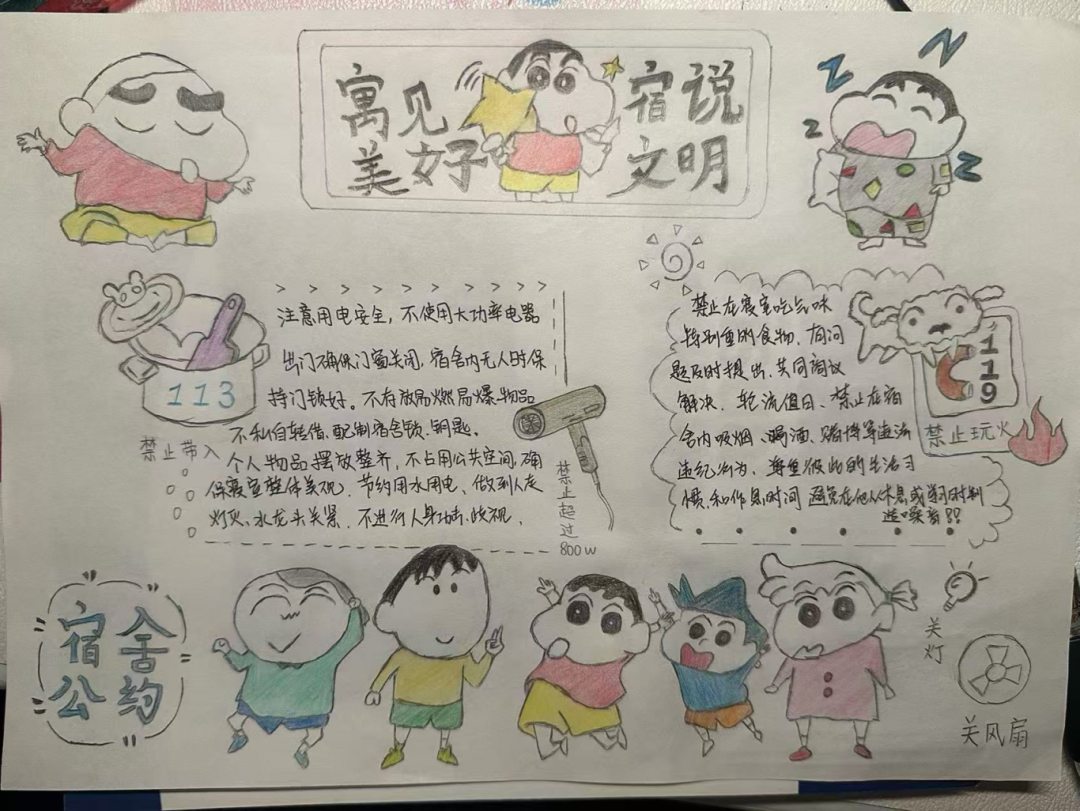 寓见 宿说
美好 文明
Z
Z
Z
Z
注意用电安全，不使用大功率电器
出门确保门窗关闭，宿舍内无人时保
持门锁好。不存放易燃易爆物品
不私自转借、配制宿舍锁、钥匙。
个人物品摆放整齐，不占用公共空间，确
保寝室整体美观、节约用水用电、做到人走
灯灭、水龙头关紧、不进行人身功击、歧视、
113
禁止带入
禁止超过
800w
禁止在寝室吃气味
特别重的食物、有问
题及时提出、共同商议
解决、轮流值日、禁止在宿
舍内吸烟、喝酒、赌博等违法
违纪行为、尊重彼此的生活习
惯、和作息时间 避免在他人休息或学习时制
造噪音??
119
禁止玩火
宿舍
公约
关灯
关风扇